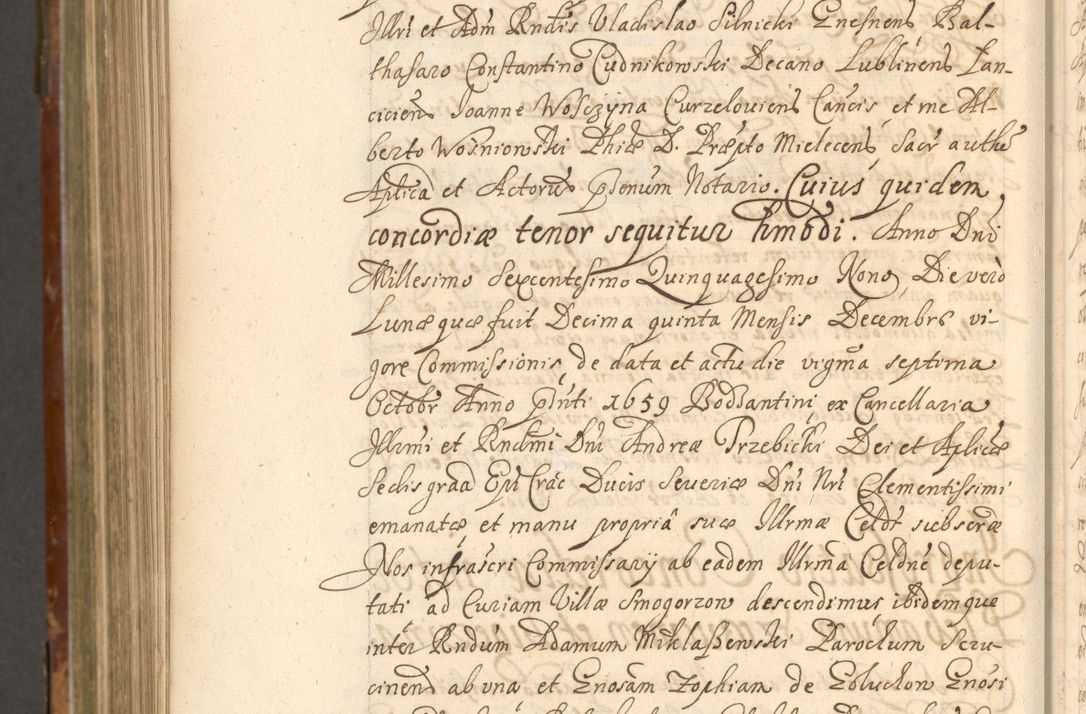 Illri et Adm Rndis Vladislao Silnicki Gnesnens Bal-
thasaro Constantino Cudnikowski Decano Lublinens Lan-
ciciens Joanne Wolczyna Curzeloviens Cancis et me Al-
berto Wosniowski Phiæ D. Præpto Mielecens Sacr authe
Aplica et Actorum pñtium Notario. Cuius quidem
concordiæ tenor sequitur hmodi. Anno Dni
Millesimo Sexcentesimo Quinquagesimo Nono, Die vero
Lunæ quæ fuit Decima quinta Mensis Decembrs vi-
gore Commissionis, de data et actu die vigma septima
Octobr Anno pdnti 1659 Bodsantini ex Cancellaria
Illrmi et Rndmi Dni Andreæ Trzebicki Dei et Aplicæ
Sedis graa Epi Crac Ducis Severiæ Dni Nri Clementissimi
emanatæ et manu propriâ suæ Illrmæ Celdis subscræ
Nos infrascri Commissary ab eadem Illrma Celdne depu-
tati ad Curiam Villæ Smogorzow descendimus ibidemque
inter Rndum Adamum Miklaszewski Parochum Scru-
cinens ab una et Gnosam Zophiam de Goluchow Gnosi